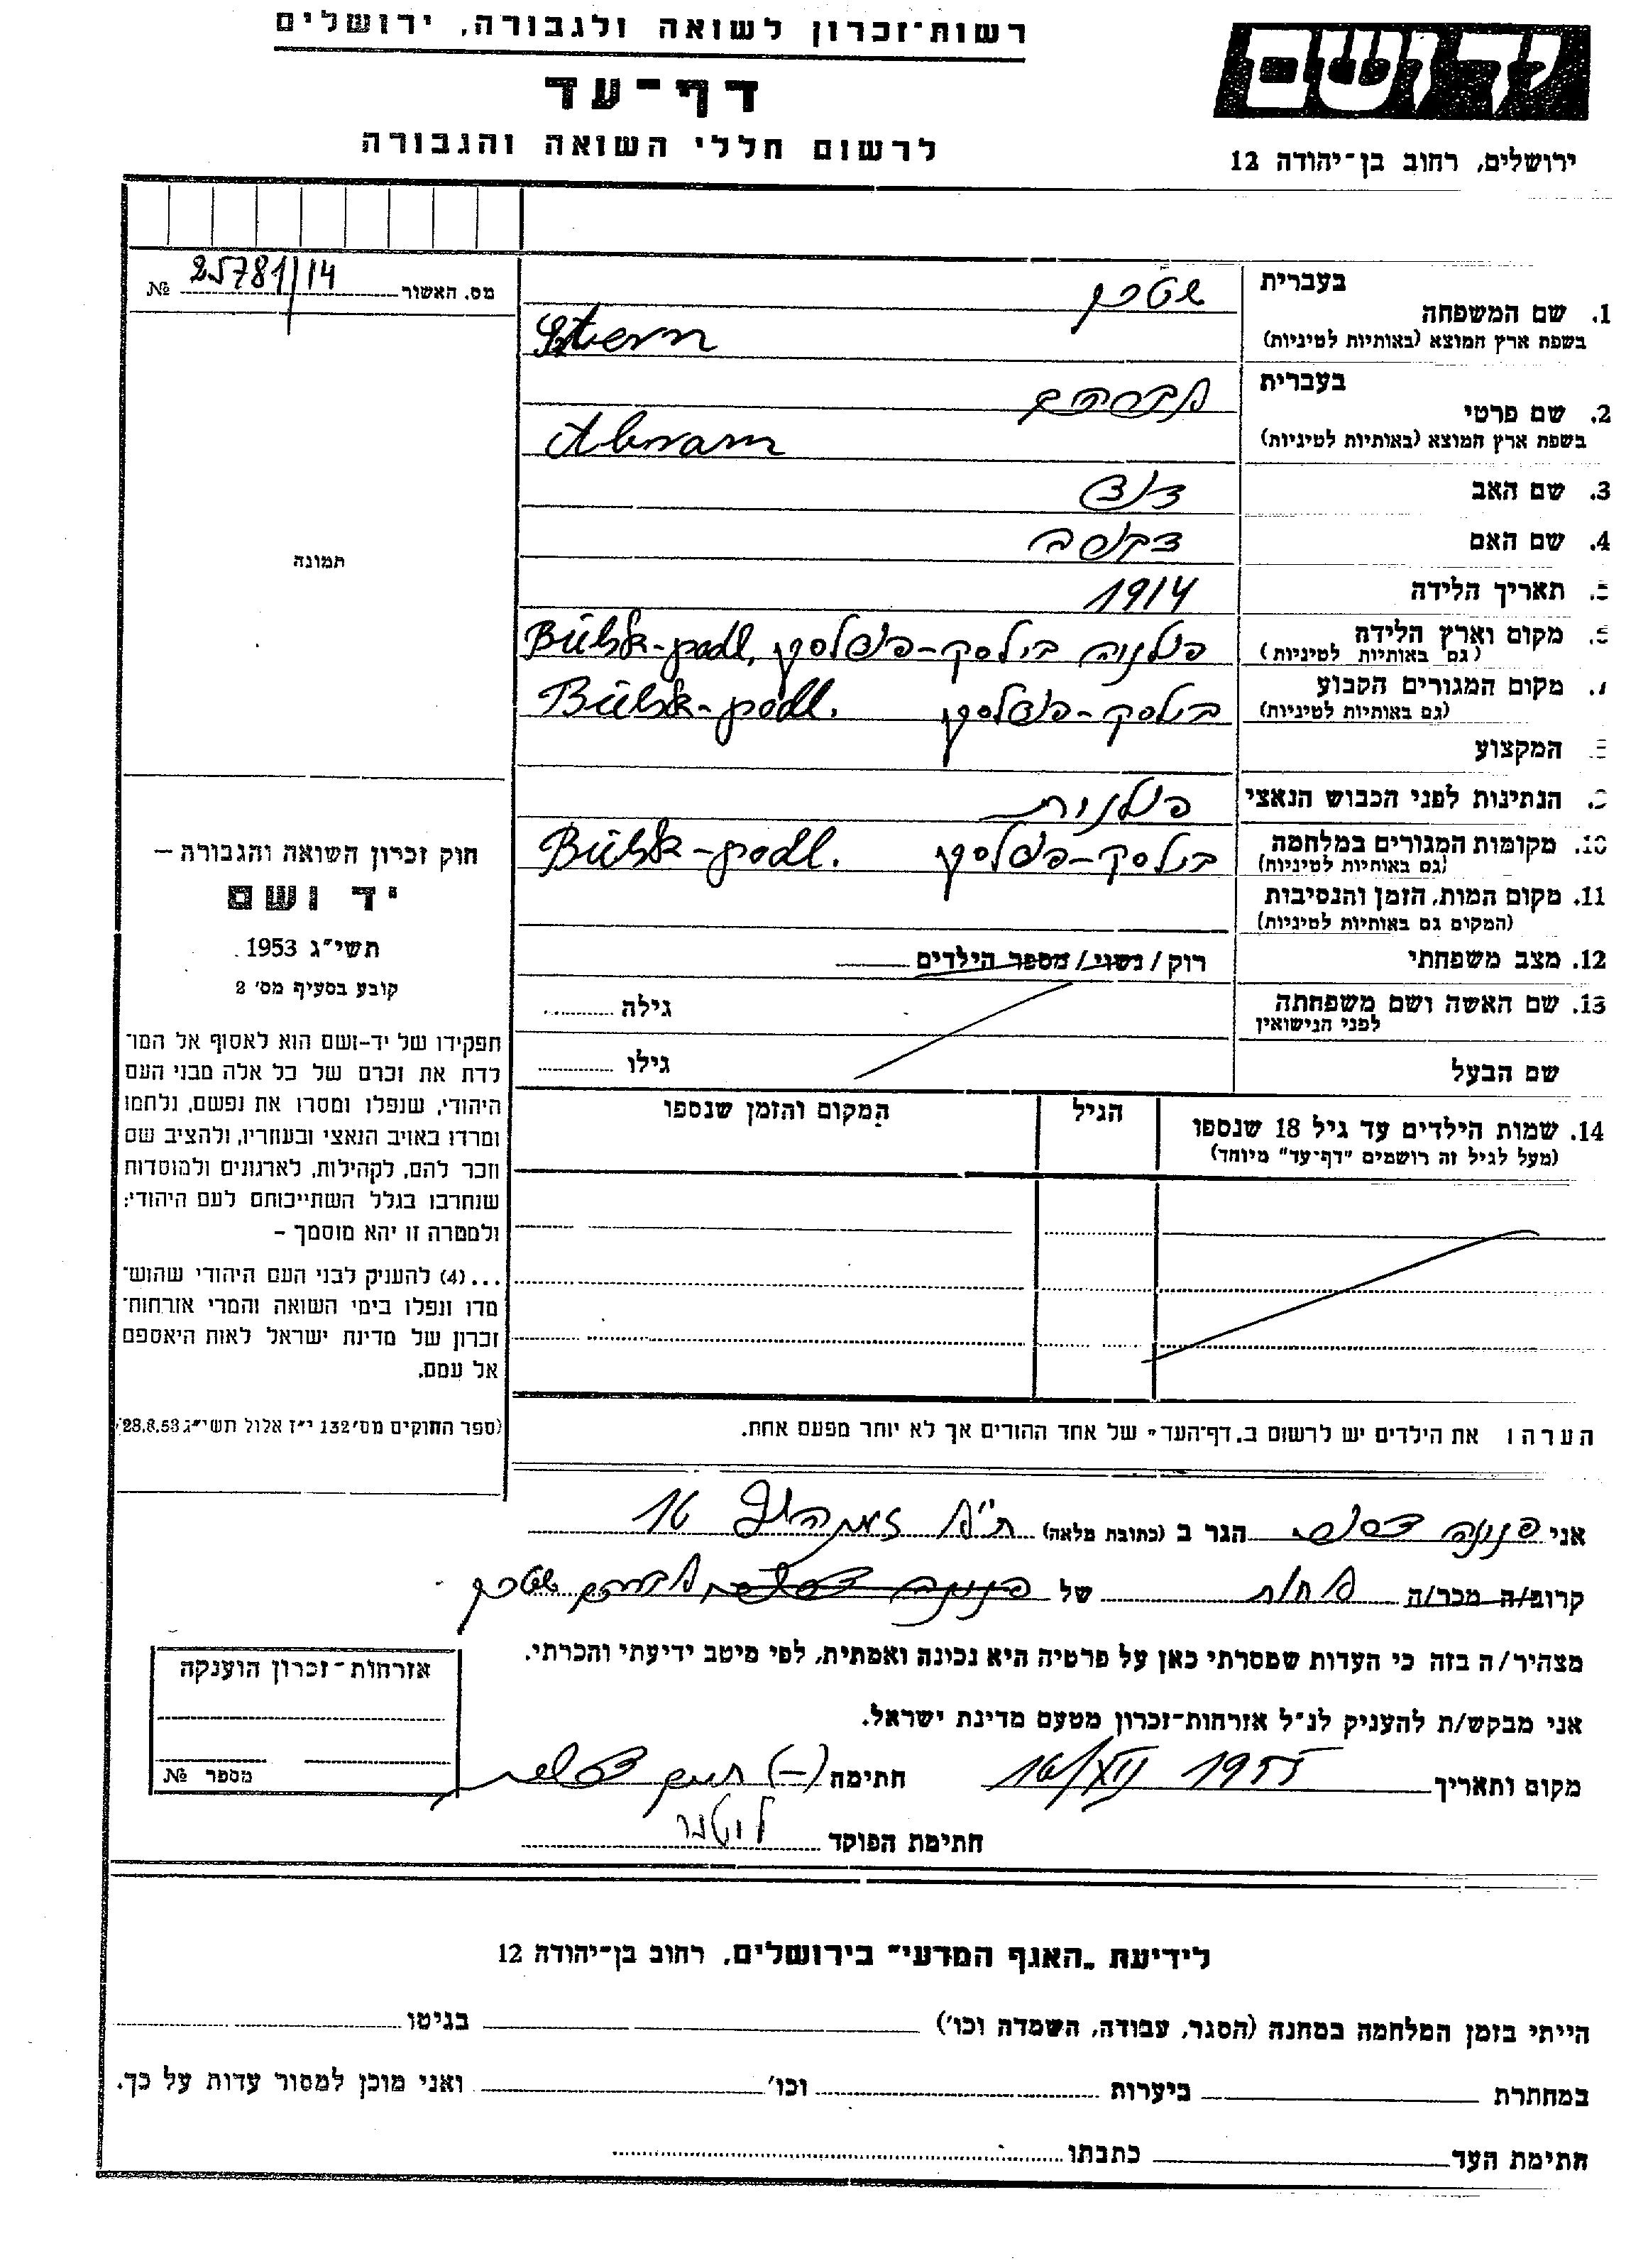 רשות־זכרון לשואה ולגבורה, ירושלים
דף־עד
לרשום חללי השואה והגבורה
יד ושם
ירושלים, רחוב בן־יהודה 12
מס. האשור 25781/14 №
תמונה
1. שם המשפחה בעברית שטרן
בשפת ארץ המוצא (באותיות לטיניות) Sztern
2. שם פרטי בעברית אברהם
בשפת ארץ המוצא (באותיות לטיניות) Abram
3. שם האב דוד
4. שם האם
5. תאריך הלידה 1914
6. מקום וארץ הלידה (גם באותיות לטיניות) בילסק-פודלסק, Bielsk-podl.
7. מקום המגורים הקבוע (גם באותיות לטיניות) בילסק-פודלסק Bielsk-podl.
8. המקצוע
9. הנתינות לפני הכבוש הנאצי פולנית
10. מקומות המגורים במלחמה (גם באותיות לטיניות) בילסק-פודלסק Bielsk-podl.
11. מקום המות, הזמן והנסיבות (המקום גם באותיות לטיניות)
12. מצב משפחתי רוק/נשוי/מספר הילדים
13. שם האשה ושם משפחתה לפני הנישואין גילה
שם הבעל גילו
14. שמות הילדים עד גיל 18 שנספו הגיל המקום והזמן שנספו
(מעל לגיל זה רושמים "דף־עד" מיוחד)
הערה: את הילדים יש לרשום ב„דף־העד" של אחד ההורים אך לא יותר מפעם אחת.
חוק זכרון השואה והגבורה —
יד ושם
תשי"ג 1953
קובע בסעיף מס' 2
תפקידו של יד-ושם הוא לאסוף אל המו־
לדת את זכרם של כל אלה מבני העם
היהודי, שנפלו ומסרו את נפשם, נלחמו
ומרדו באויב הנאצי ובעוזריו, ולהציב שם
וזכר להם, לקהילות, לארגונים ולמוסדות
שנחרבו בגלל השתייכותם לעם היהודי;
ולמטרה זו יהא מוסמך —
...(4) להעניק לבני העם היהודי שהוש־
מדו ונפלו בימי השואה והמרי אזרחות־
זכרון של מדינת ישראל לאות היאספם
אל עמם.
(ספר החוקים מס' 132 י"ז אלול תשי"ג 28.8.53)
אני פנינה הגר ב (כתובת מלאה) ת"א 16
קרוב/ה מכר/ה אחות של אברהם שטרן
מצהיר/ה בזה כי העדות שמסרתי כאן על פרטיה היא נכונה ואמתית, לפי מיטב ידיעתי והכרתי.
אני מבקש/ת להעניק לנ"ל אזרחות־זכרון מטעם מדינת ישראל.
מקום ותאריך 1955 חתימה (—) חיים
חתימת הפוקד
אזרחות־זכרון הוענקה
מספר №
לידיעת „האגף המדעי" בירושלים, רחוב בן־יהודה 12
הייתי בזמן המלחמה במחנה (הסגר, עבודה, השמדה וכו') בגיטו
במחתרת ביערות וכו' ואני מוכן למסור עדות על כך.
חתימת העד כתבתו